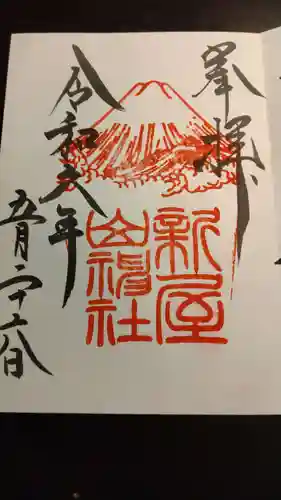 奉拝
新屋
山神社
令和六年
五月二十六日